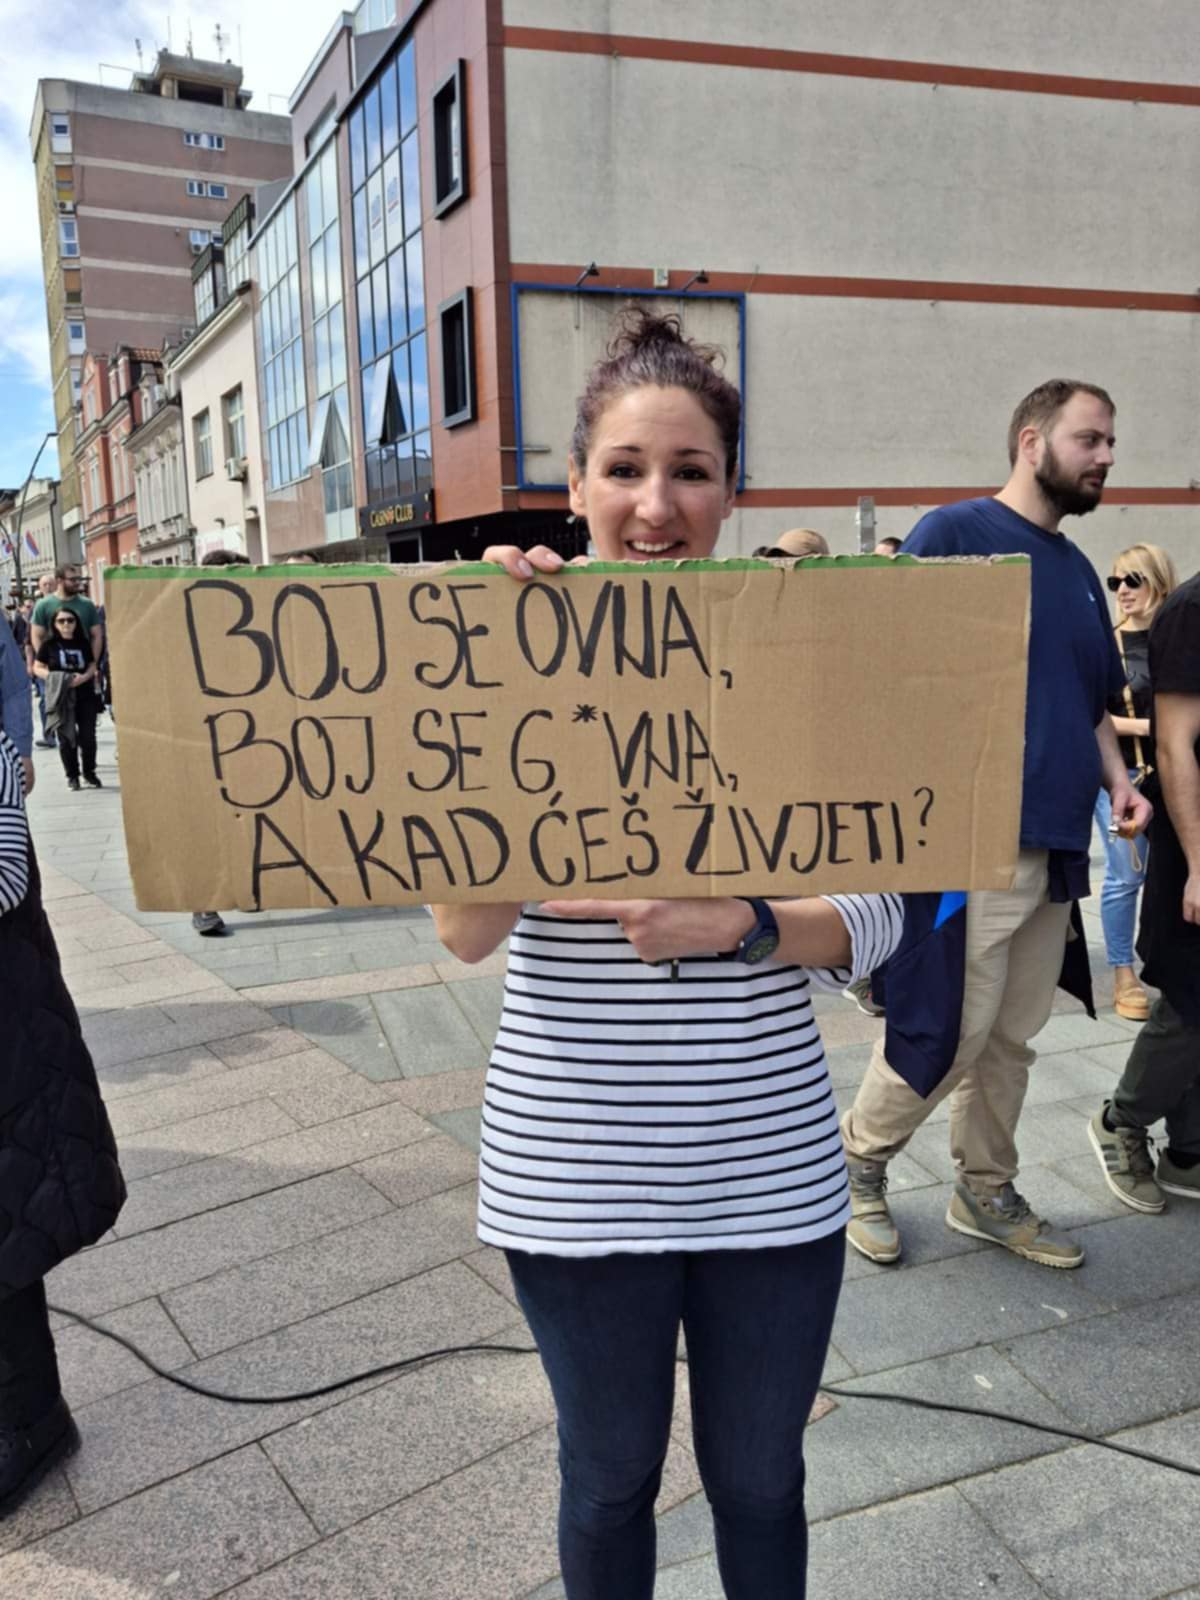 CASINO CLUB
BOJ SE OVNA,
BOJ SE G*VNA,
A KAD ĆEŠ ŽIVJETI?